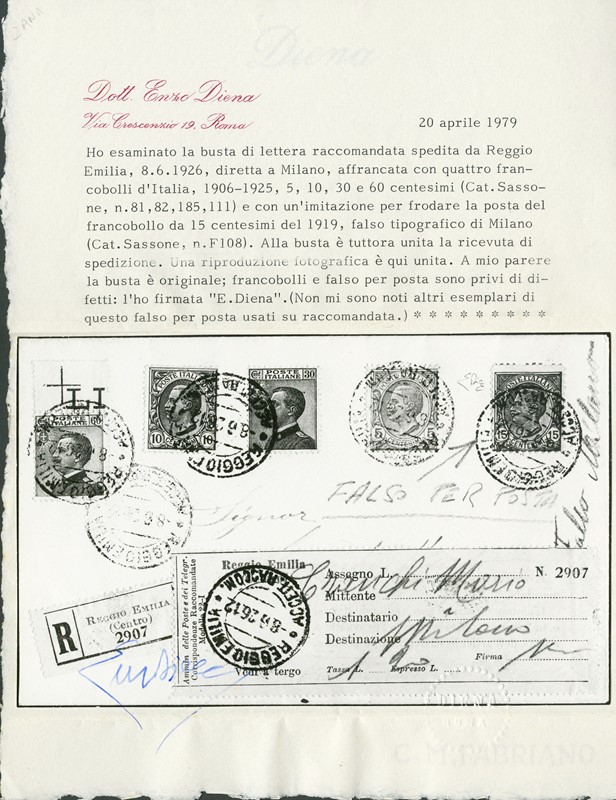 Diena
Dott. Enzo Diena
Via Crescenzio 19, Roma
20 aprile 1979
Ho esaminato la busta di lettera raccomandata spedita da Reggio
Emilia, 8.6.1926, diretta a Milano, affrancata con quattro fran-
cobolli d'Italia, 1906-1925, 5, 10, 30 e 60 centesimi (Cat.Sasso-
ne, n.81,82,185,111) e con un'imitazione per frodare la posta del
francobollo da 15 centesimi del 1919, falso tipografico di Milano
(Cat.Sassone, n.F108). Alla busta è tuttora unita la ricevuta di
spedizione. Una riproduzione fotografica è qui unita. A mio parere
la busta è originale; francobolli e falso per posta sono privi di di-
fetti: l'ho firmata "E.Diena".(Non mi sono noti altri esemplari di
questo falso per posta usati su raccomandata.) * * * * * * * * *
POSTE ITALIANE 30
POSTE ITALIANE
10 10
5
15 15
60
FALSO PER POSTA
Falso Milano
Signor
Reggio Emilia
Assegno L.
N. 2907
Mittente
Destinatario
Destinazione
Milano
Firma
Tassa L.
Espresso L.
Vedi a tergo
Ammin. delle Poste e dei Telegr.
Corrispondenze Raccomandate
Modello 22-I
R
REGGIO EMILIA
(Centro)
2907
REGGIO EMILIA
ACCETT. RACCOM.
8.6.26.12
C. M. FABRIANO